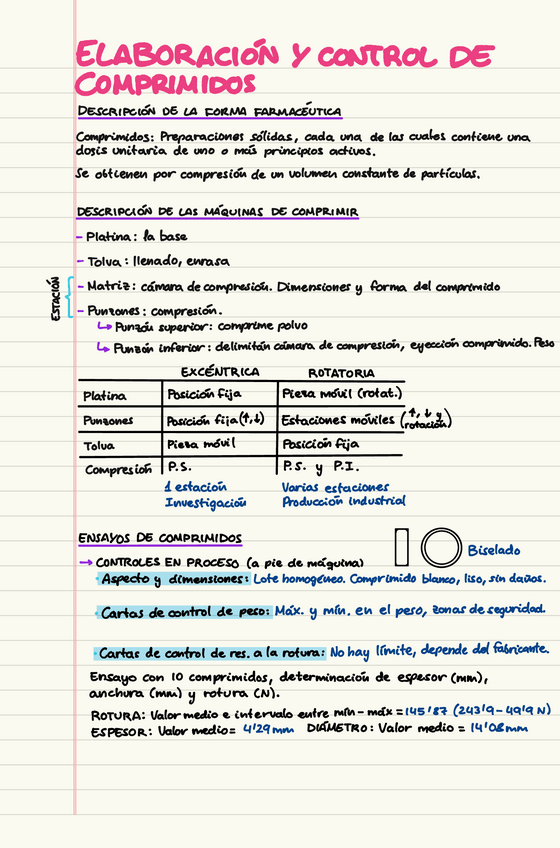 ELABORACIÓN Y CONTROL DE
COMPRIMIDOS
DESCRIPCIÓN DE LA FORMA FARMACÉUTICA
Comprimidos: Preparaciones sólidas, cada una de las cuales contiene una
dosis unitaria de uno o más principios activos.
Se obtienen por compresión de un volumen constante de partículas.
DESCRIPCIÓN DE LAS MÁQUINAS DE COMPRIMIR
- Platina: la base
- Tolva: llenado, enrasa
ESTACIÓN
- Matriz: cámara de compresión. Dimensiones y forma del comprimido
- Punzones: compresión.
↳ Punzón superior: comprime polvo
↳ Punzón inferior: delimitan cámara de compresión, eyección comprimido. Peso
EXCÉNTRICA ROTATORIA
Platina Posición fija Pieza móvil (rotat.)
Punzones Posición fija (↑,↓) Estaciones móviles (↑, ↓ y rotación)
Tolva Pieza móvil Posición fija
Compresión P.S. P.S. y P.I.
1 estación Varias estaciones
Investigación Producción Industrial
ENSAYOS DE COMPRIMIDOS
Biselado
→ CONTROLES EN PROCESO (a pie de máquina)
· Aspecto y dimensiones: Lote homogéneo. Comprimido blanco, liso, sin daños.
· Cartas de control de peso: Máx. y mín. en el peso, zonas de seguridad.
· Cartas de control de res. a la rotura: No hay límite, depende del fabricante.
Ensayo con 10 comprimidos, determinación de espesor (mm),
anchura (mm) y rotura (N).
ROTURA: Valor medio e intervalo entre mín - máx = 145'87 (243'9 - 49'9 N)
ESPESOR: Valor medio = 4'29 mm DIÁMETRO: Valor medio = 14'08 mm